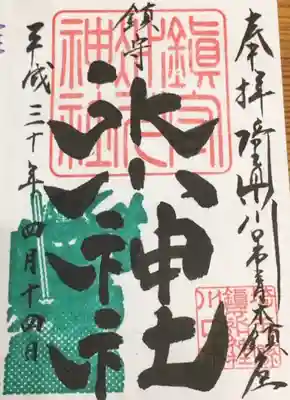 奉拝 埼玉県川口市青木鎮座
鎮守
氷川神社
平成三十年四月十四日
鎮守氷川神社